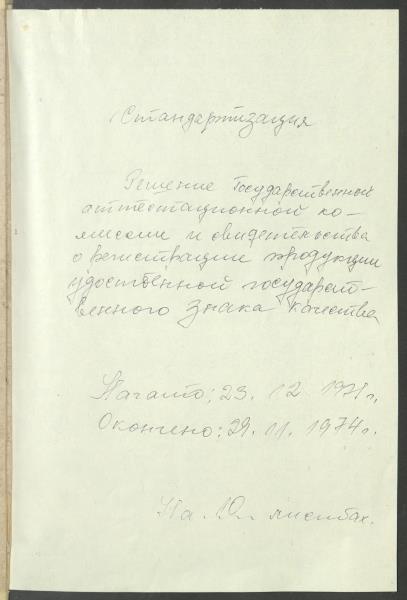 Стандартизация
Решение Государственной
аттестационной ко-
миссии и свидетельства
о регистрации продукции
удостоенной государст-
венного Знака Качества
Начато: 23. 12 1971 г.
Окончено: 29. 11. 1974 г.
На 10 листах.